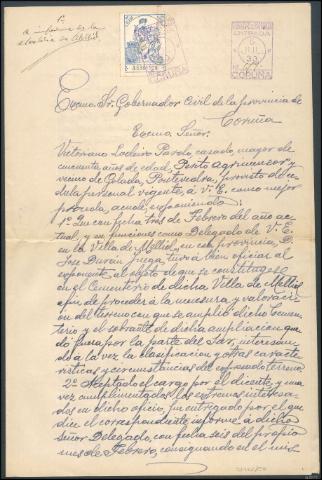 1º
A informe de la
Alcaldía de Mellid
ENTRADA
JUL. 33
CORUÑA
CORUÑA
Excmo. Sr. Gobernador Civil de la provincia de
Coruña
Excmo Señor:
Victoriano Lodeiro Pardo, casado, mayor de
cincuenta años de edad, Perito agrimensor y
vecino de Golada, Pontevedra, provisto de cé-
dula personal vigente, á V.E. como mejor
proceda, acude, exponiendo:
1º Que con fecha tres de Febrero del año ac-
tual, y en funciones como Delegado de V. E.
en la Villa de Mellid, en esta provincia, D.
José Durán Juega, tuvo á bien oficiar al
exponente al objeto de que se constituyese
en el Cementerio de dicha Villa de Mellid
á fin de proceder á la mensura y valoración
del terreno con que se amplió dicho Cemen-
terio y el sobrante de dicha ampliación que
dó fuera por la parte del Sur, interesán-
do á la vez la clasificación y otras caracte-
rísticas y circunstancias del expresado terreno.
2º Aceptado el cargo por el dicente, y una
vez cumplimentados los extremos interesa-
dos en dicho oficio, fué entregado por el que
dice el correspondiente informe á dicho
señor Delegado, con fecha seis del propio
mes de Febrero, consignando en el mis